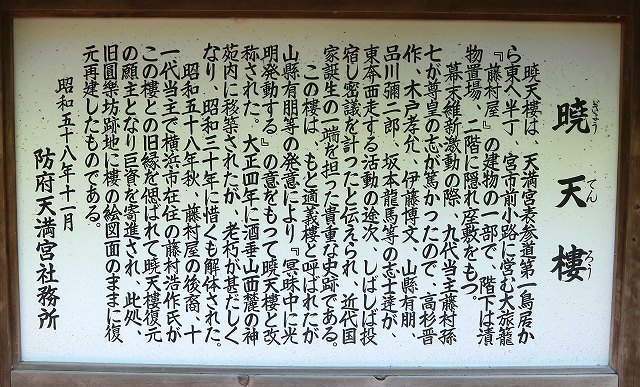 暁天樓
ぎょうてんろう
暁天樓は、天満宮表参道第一鳥居か
ら東へ半丁、宮市前小路に営む大旅籠
『藤村屋』の建物の一部で、階下は漬
物置場、二階に隠れ座敷をもつ。
幕末維新激動の際、九代当主藤村孫
七が尊皇の志が篤かったので、高杉晋
作、木戸孝允、伊藤博文、山縣有朋、
品川彌二郎、坂本龍馬等の志士達が、
東奔西走する活動の途次、しばしば投
宿し密議を計ったと伝えられ、近代国
家誕生の一端を担った貴重な史跡である。
この樓は、もと適義樓と呼ばれたが
山縣有朋等の発意により『冥昧中に光
明発動する』の意をもって暁天樓と改
称された。大正四年に酒垂山西麓の神
苑内に移築されたが、老朽が甚だしく
なり、昭和三十年に惜くも解体された。
昭和五十八年秋、藤村屋の後裔、十
一代当主で横浜市在住の藤村浩作氏が
この樓との旧縁を偲ばれて暁天樓復元
の願主となり巨資を寄進され、此処、
旧圓樂坊跡地に樓の絵図面のままに復
元再建したものである。
昭和五十八年十一月
防府天満宮社務所